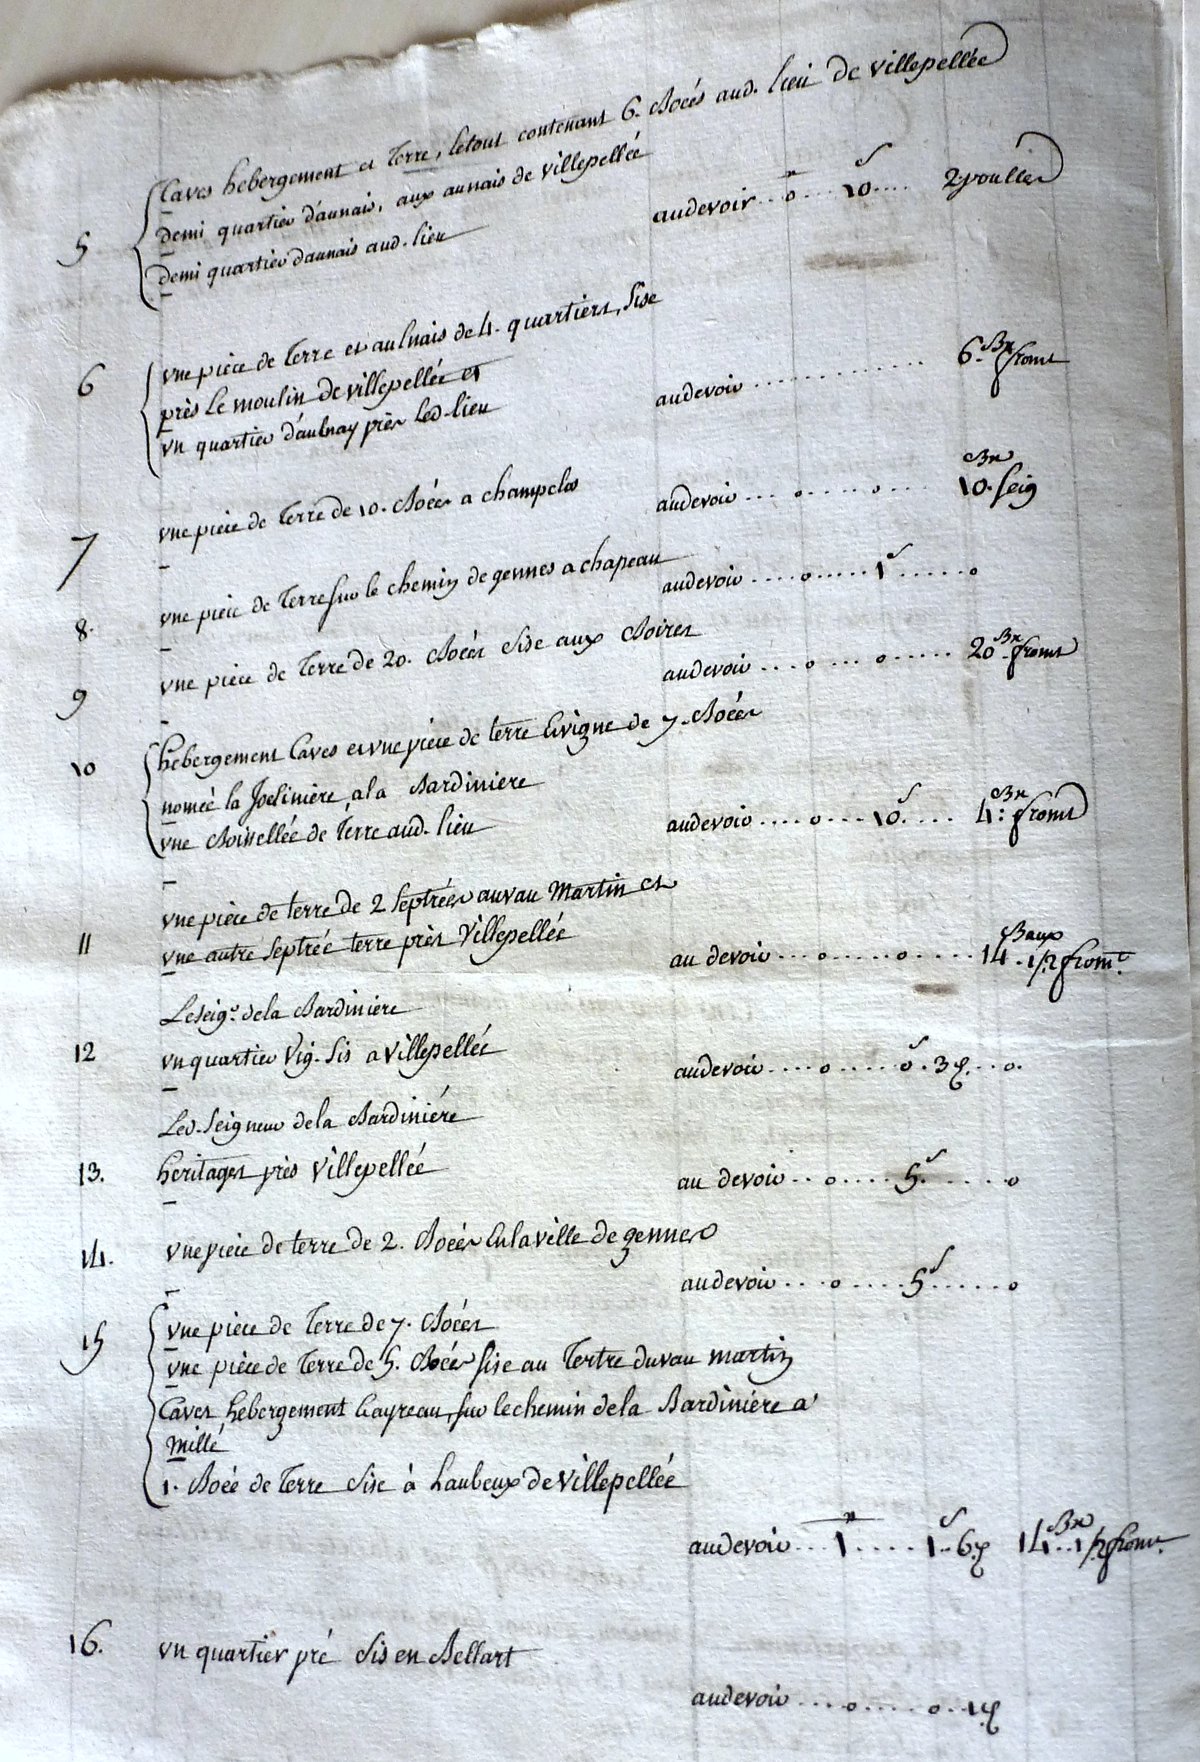 Caves hebergement et Terre, letout contenant 6. Boées aud. lieu de villepellée
demi quartier d'aunais, aux aunais de villepellée
5 demi quartier daunais aud. lieu
audevoir .. o .... 10 s .... 2 poulles
6 vne piece de Terre et aulnais de 4. quartiers, sise
près Le moulin de villepellée et
vn quartier d'aulnay près Led. lieu
audevoir ............ 6. Bx from t
7 vne piece de Terre de 10. Boées a champclos
audevoir .... o .... o .... 10. Bx seig
8. vne piece de Terre sur le chemin de gennes a chapeau
audevoir .... o ..... 1 s ...... o
9 vne piece de Terre de 20. Boées sise aux Boires
audevoir ... o ... o ..... 20 Bx from t
10 hebergement Caves et vne piece de terre Evigne de 7. Boées
nomeé la Joeliniere a la Bardiniere
vne Boissellée de Terre aud. lieu
audevoir .... o ... 10. s .... 4: Bx from t
vne pièce de terre de 2 septrées auvau Martin et
11 vne autre septrée terre près Villepellée
au devoir ... o ..... o ..... 14 Baux .. 1/2 from t.
Leseig r. dela Bardiniere
12 vn quartier vig. sis a villepellée
audevoir .... o ..... o s . 3 d ... o.
Led. seigneur dela Bardiniére
13. heritages près Villepellée
au devoir .. o .... 5. s ...... o
14. vne piece de terre de 2. Boées En la ville de gennes
audevoir ... o .... 5 s ...... o
15 vne pièce de Terre de 7. Boées
vne pièce de Terre de 5. Boées sise au Tertre duvau martin
Caves, hebergement Cayreau, sur le chemin dela Bardiniére a
Millé
1. Boée de Terre sise à Laubeux de villepellée
audevoir ... 1 ..... 1 s .. 6 d 14 Bx .. 1/2 from t.
16. vn quartier pré sis en Bellart
audevoir .... o ..... o .. 1 d